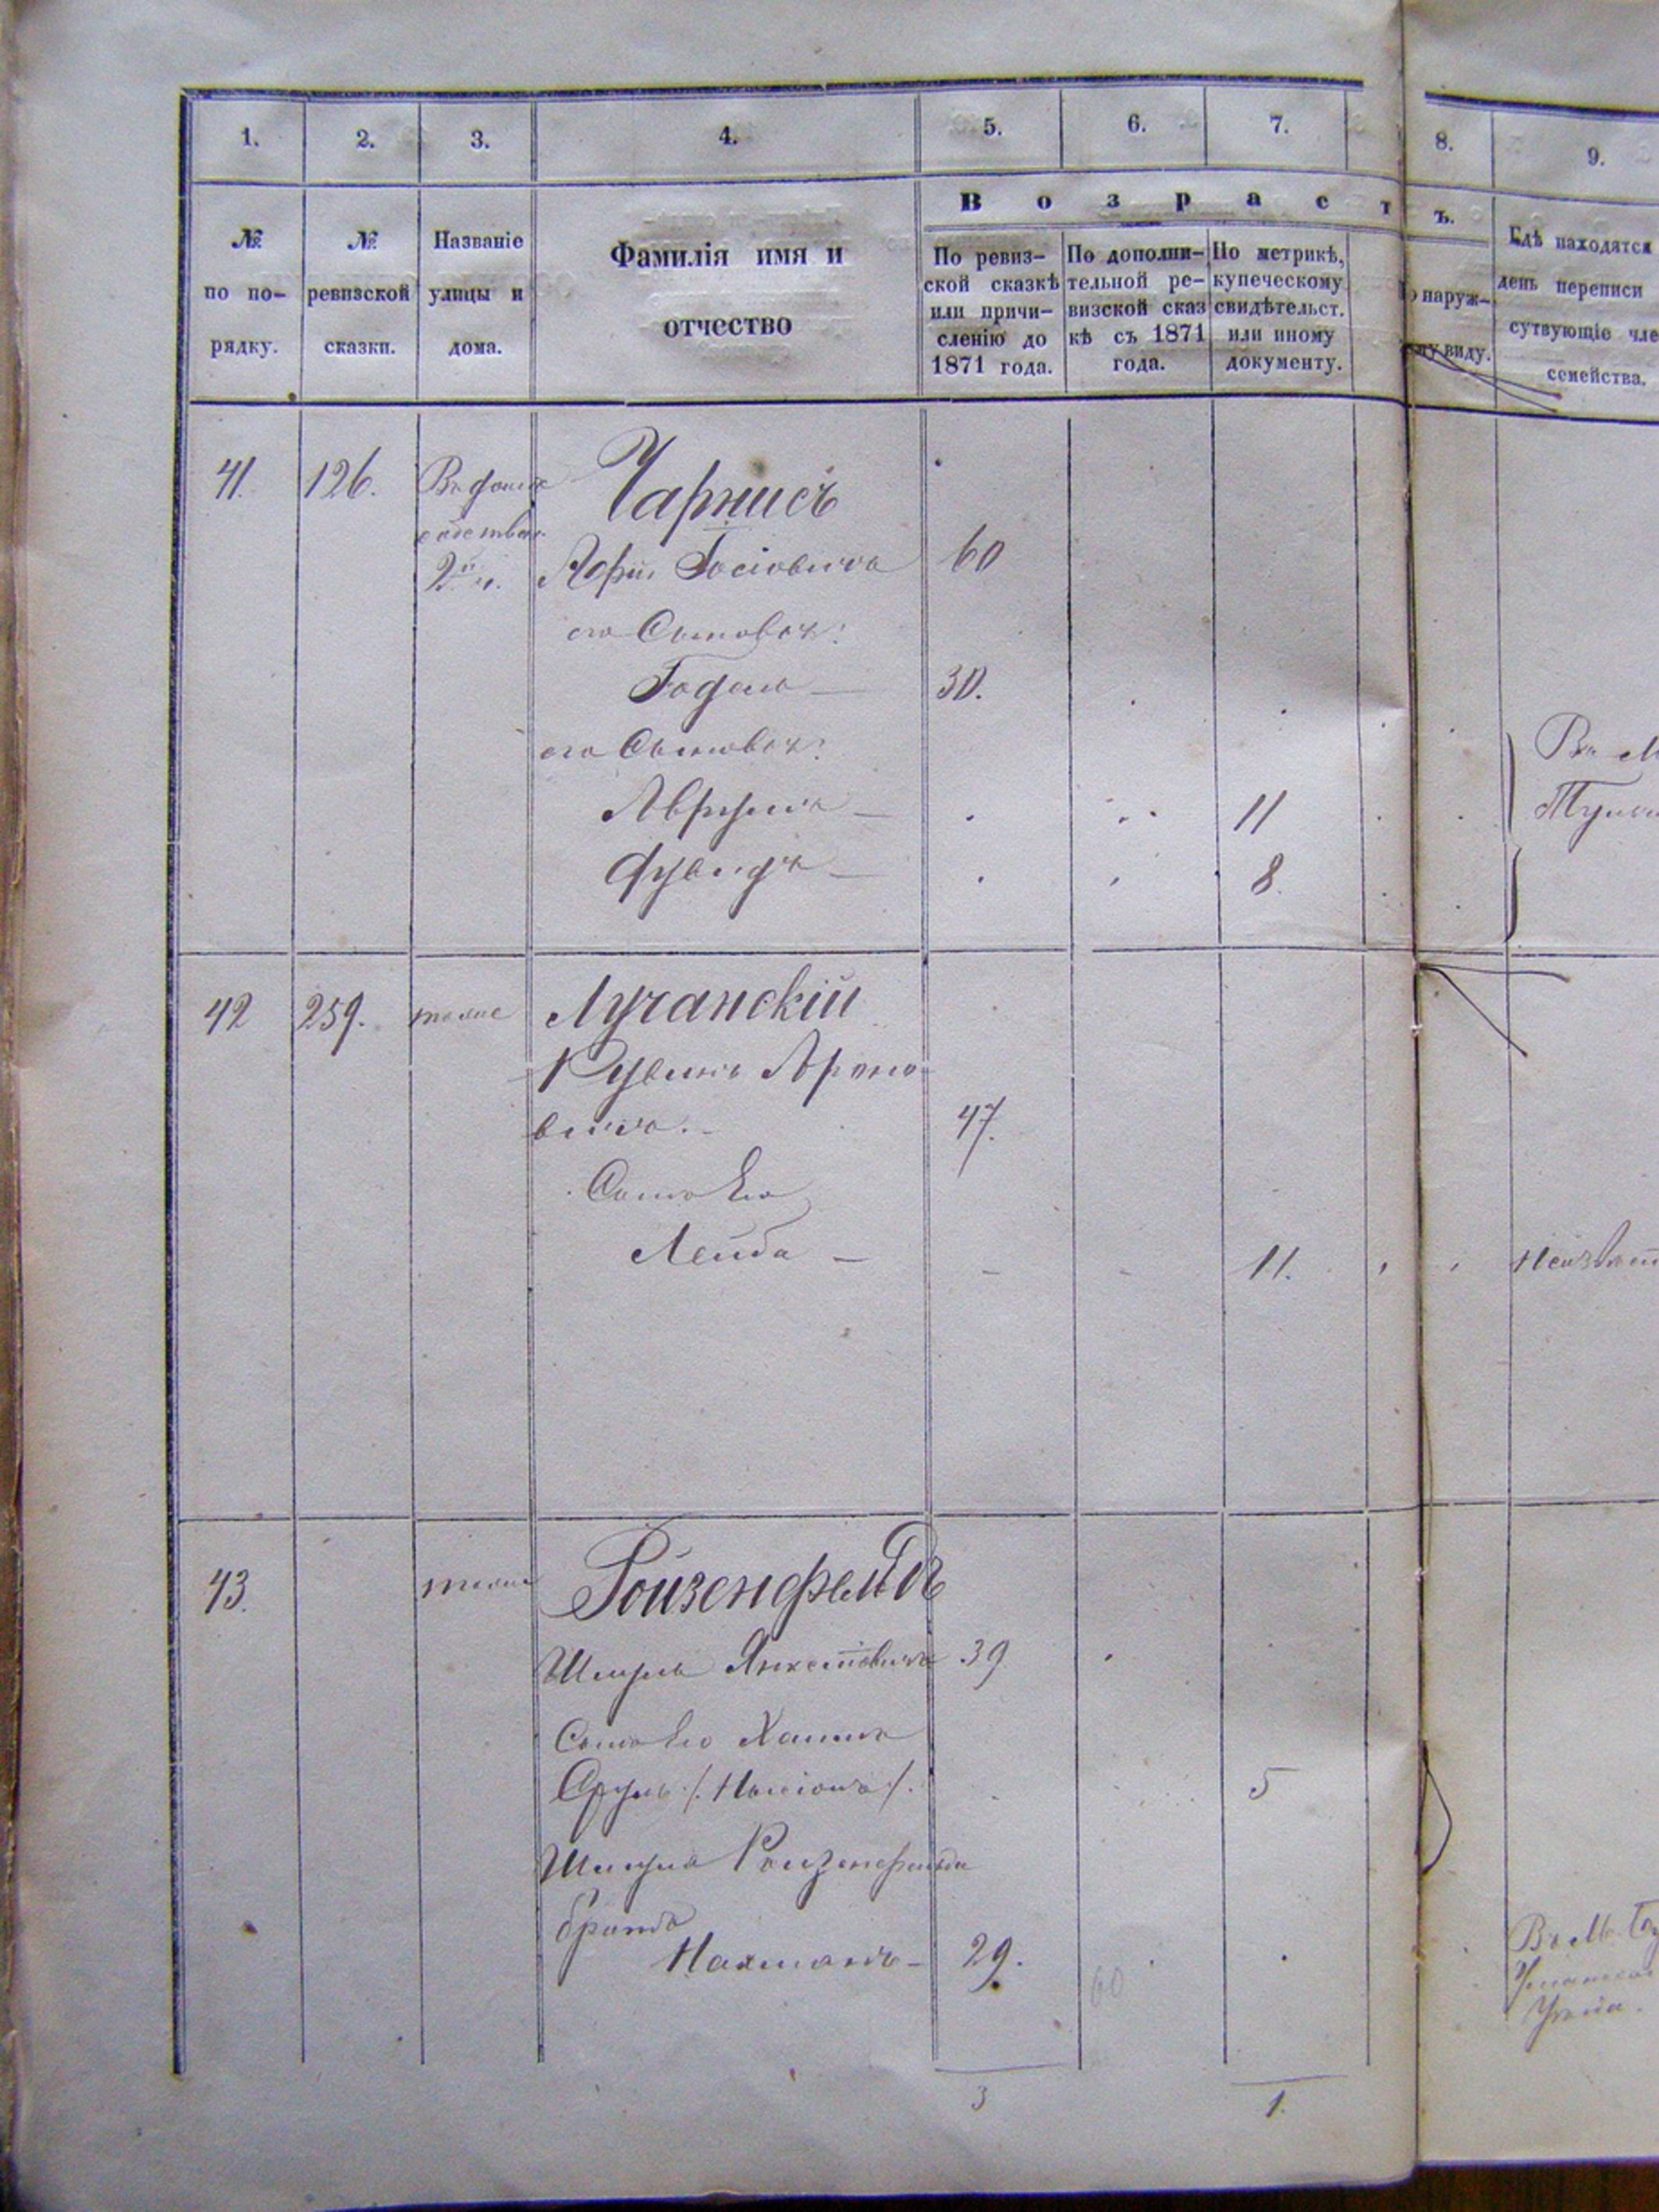 1. 2. 3. 4. 5. 6. 7. 8. 9.
В о з р а с т ъ.
№ по по- рядку.
№ ревизской сказки.
Названіе улицы и дома.
Фамилія имя и
отчество
По ревиз-
ской сказкѣ
или причи-
сленію до
1871 года.
По дополни-
тельной ре-
визской сказ
кѣ съ 1871
года.
По метрикѣ,
купеческому
свидѣтельст.
или иному
документу.
о наруж-
му виду.
Гдѣ находятся
день переписи
сутвующіе чле
семейства.
41. 126. Въ домѣ Чарнисъ
собствен.
2й ч. Іосіовичъ 60
его Сыновья:
Годель — 30.
его Сыновья:
Аврумъ — 11
Дувидъ — 8.
Въ М
42 259. тоже Лучанскій
Рувинъ Ароно
вичъ. — 47.
Сынъ Его
Лейба — 11. Неизвѣст
43. тоже Ройзенфельдъ
Шмуль Янкелевичъ 39
Сынъ Его Хаимъ
Сруль /. Нысіонъ /. 5
Шмуля Ройзенфельда
братъ
Нахманъ — 29.
60
Въ М.
Уманска
Уѣзда.
3 1.